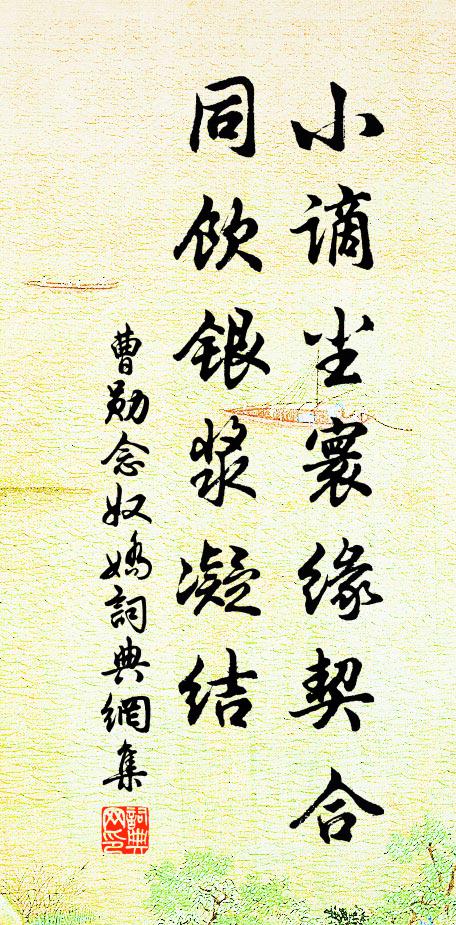 小谪尘寰缘契合
同饮银浆凝结
曹勋念奴娇词典網集
詞典網印